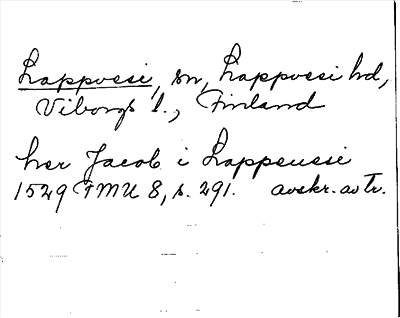 Lappvesi, sn, Lappvesi hd,
Viborgs l., Finland
her Jacob i Lappeuesi
1529 FMU 8, s. 291. avskr. av Tr.